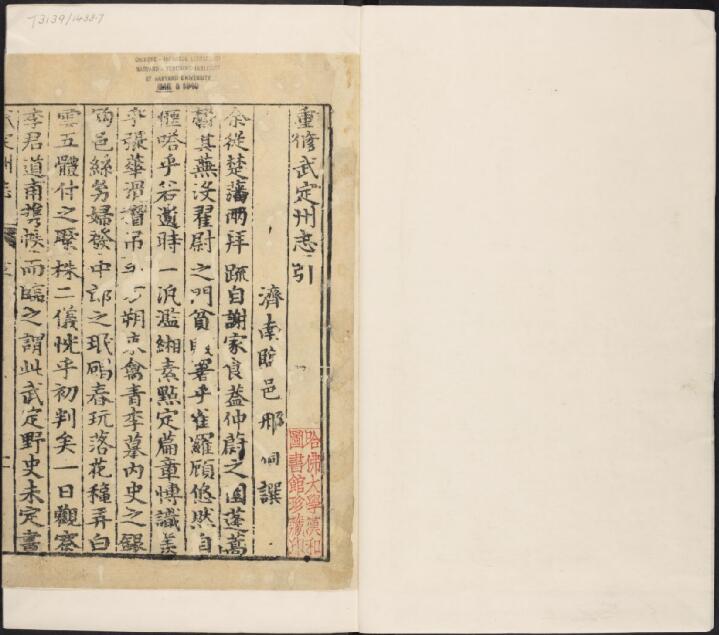 T3139/1433.7
CHINESE - JAPANESE LIBRARY
HARVARD - YENCHING INSTITUTE
AT HARVARD UNIVERSITY
MAR 8 1940
重修武定州志引
濟南臨邑邢侗譔
余從楚藩兩拜疏自謝家食蓋仲蔚之園蓬蒿
翳其蕪没翟尉之門貧署乎雀羅顧悠然自
偃嗒乎若遺時一汎濫緗素點定篇章愽識羡
乎張華滑稽吊朔禽青李墓内史之
邑絲勞婦發中郎之珉碣春玩落花穐弄白
雲五體付之槃株二儀恍乎初判矣一日觀察
李君道甫携帙而臨之謂此武定野史未定書
武定州志
哈佛大學漢和
圖書館珍藏印